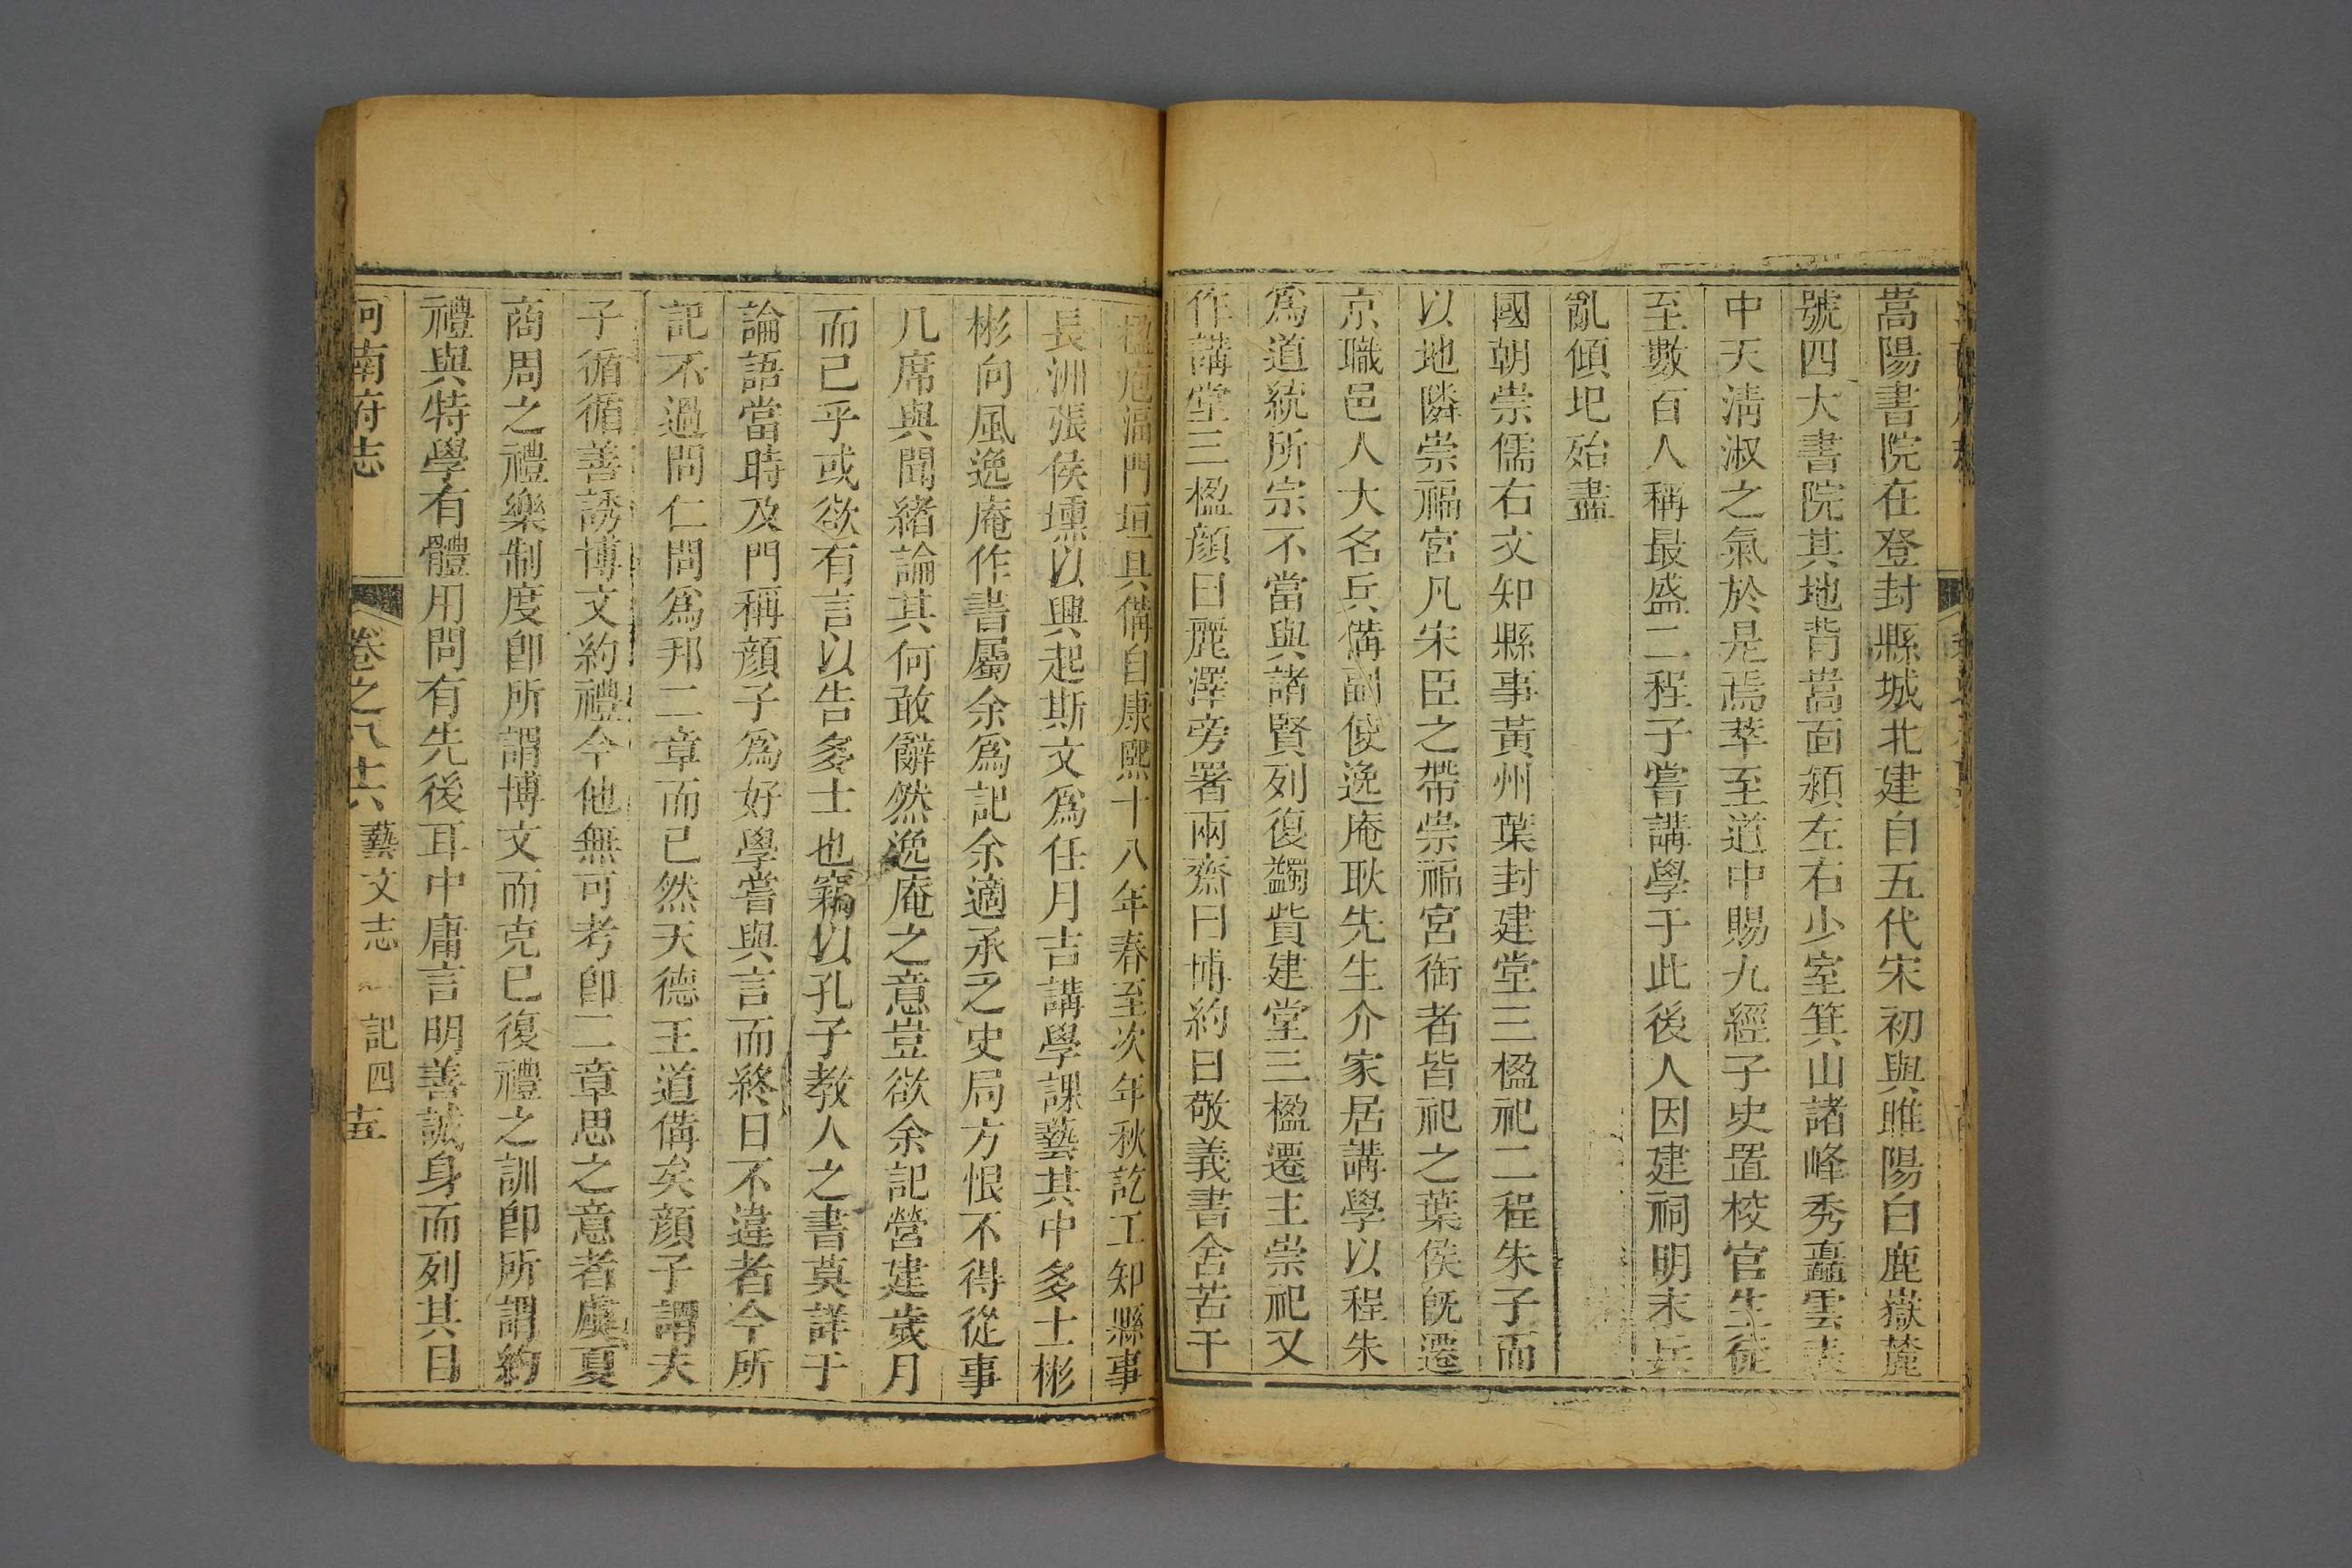 嵩陽書院在登封縣城北建自五代宋初與睢陽白鹿嶽麓
號四大書院其地背嵩面潁左右少室箕山諸峰秀矗雲表
中天淸淑之氣於是焉萃至道中賜九經子史置校官生徒
至數百人稱最盛二程子嘗講學于此後人因建祠明末兵
亂傾圯殆盡
國朝崇儒右文知縣事黃州葉封建堂三楹祀二程朱子而
以地隣崇福宮凡宋臣之帶崇福宮銜者皆祀之葉侯旣遷
京職邑人大名兵備副使逸庵耿先生介家居講學以程朱
爲道統所宗不當與諸賢列復蠲貲建堂三楹遷主崇祀又
作講堂三楹顏曰麗澤旁署兩齋曰博約曰敬義書舍若干
楹庖湢門垣具備自康熙十八年春至次年秋訖工知縣事
長洲張侯壎以興起斯文爲任月吉講學課藝其中多士彬
彬向風逸庵作書屬余爲記余適承乏史局方恨不得從事
几席與聞緒論其何敢辭然逸庵之意豈欲余記營建歲月
而已乎或欲有言以告多士也竊以孔子教人之書莫詳于
論語當時及門稱顏子爲好學嘗與言而終日不違者今所
記不過問仁問爲邦二章而已然天德王道備矣顏子謂夫
子循循善誘博文約禮今他無可考卽二章思之意者虞夏
商周之禮樂制度卽所謂博文而克己復禮之訓卽所謂約
禮與特學有體用問有先後耳中庸言明善誠身而列其目
河南府志 卷之八十六 藝文志 記四 十五